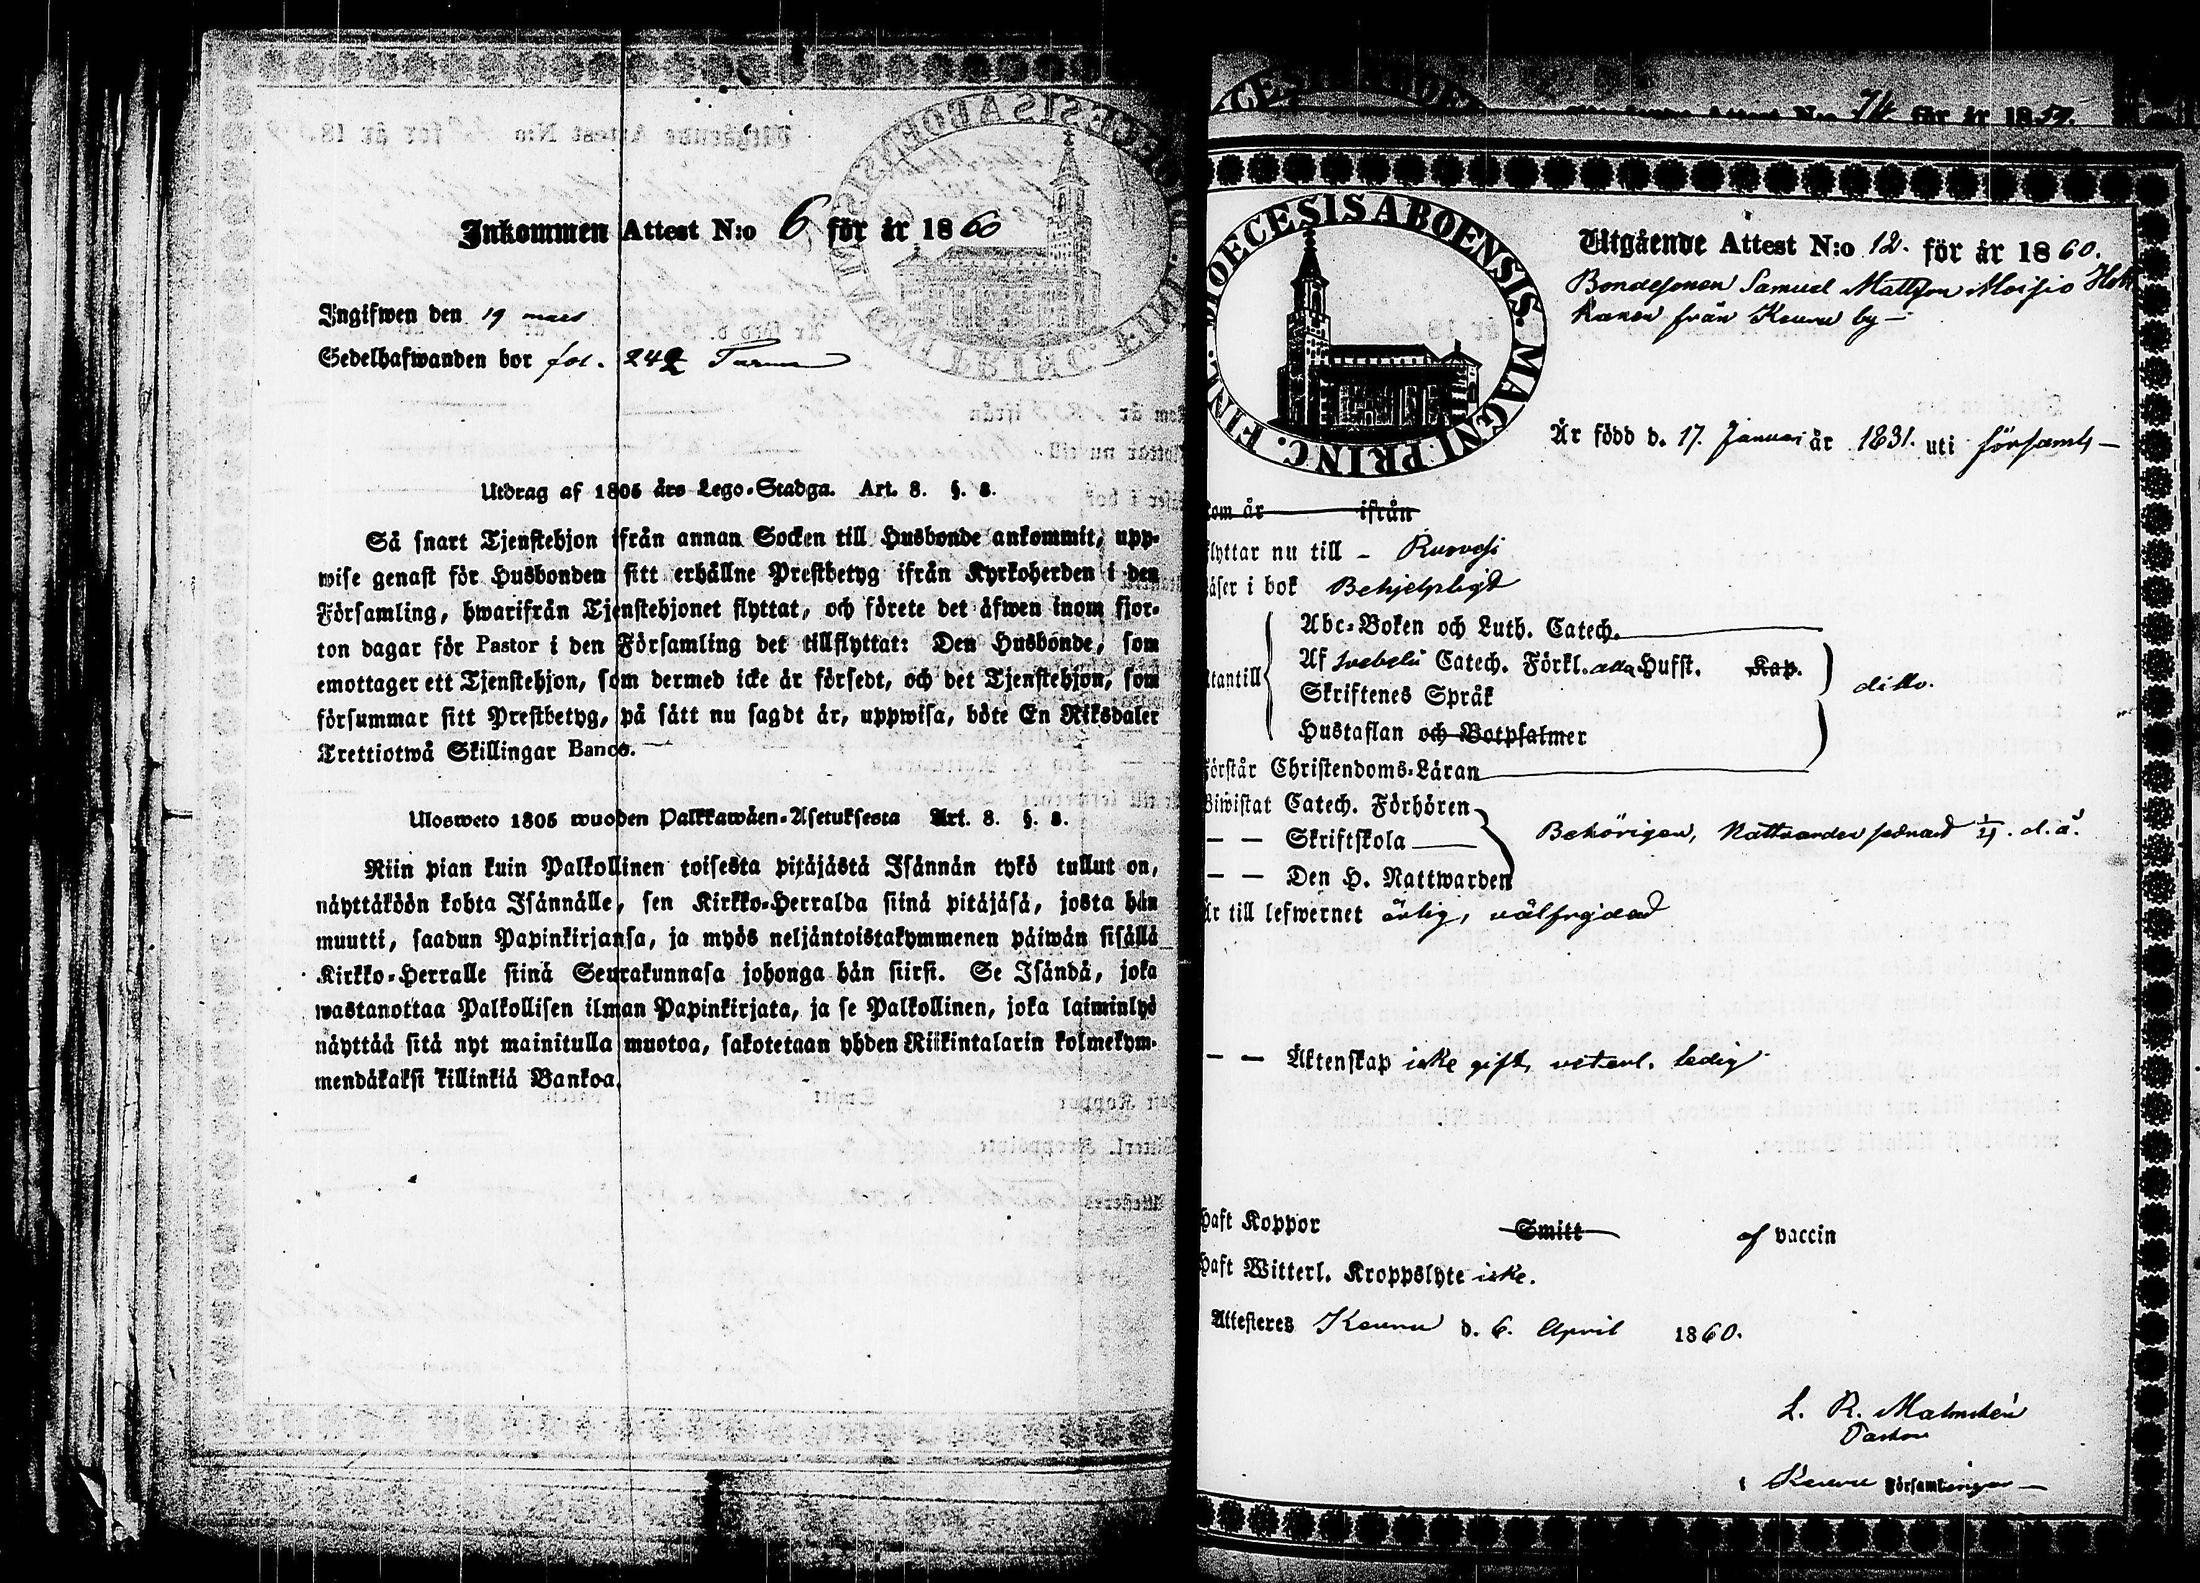 Inkommen Attest N:o 6 för år 1860
Ingifwen den 19 mars
Sedelhafwanden bor fol. 242
Utdrag af 1805 års Lego-Stadga. Art. 8. §. 8.
Så snart Tjenstehjon ifrån annan Socken till Husbonde ankommit, upp-
wise genast för Husbonden sitt erhållne Prestbetyg ifrån Kyrkoherden i den
Församling, hwarifrån Tjenstehjonet flyttat, och förete det äfwen inom fjor-
ton dagar för Pastor i den Församling det tillflyttat: Den Husbonde, som
emottager ett Tjenstehjon, som dermed icke är försedt, och det Tjenstehjon, som
försummar sitt Prestbetyg, på sätt nu sagdt är, uppwisa, böte En Riksdaler
Trettiotwå Skillingar Banco.
Ulosweto 1805 wuoden Palkkawäen-Asetuksesta Art. 8. §. 8.
Niin pian kuin Palkollinen toisesta pitäjästä Isännän tykö tullut on,
näyttäköön kohta Isännälle, sen Kirkko-Herralda siinä pitäjäsä, josta hän
muutti, saadun Papinkirjansa, ja myös neljäntoistakymmenen päiwän sisällä
Kirkko-Herralle siinä Seurakunnasa johonga hän siirsi. Se Isändä, joka
wastanottaa Palkollisen ilman Papinkirjata, ja se Palkollinen, joka laiminlyö
näyttää sitä nyt mainitulla muotoa, sakotetaan yhden Riikintalarin kolmekym-
mendäkaksi killinkiä Bankoa.
Attest N:o 74 för år 185
DIOECESIS ABOENSIS. MAGNI PRINC. FINL.
Utgående Attest N:o 12. för år 1860.
Bondesonen Samuel Mattsson Moisio
från Keuru by
Är född d. 17. Januari år 1831. uti församl
kom år ifrån
flyttar nu till Ruovesi
läser i bok Behjelpligt
Abc-Boken och Luth. Catech.
utantill Af Svebelii Catech. Förkl. alla Hufst. Kap. ditto.
Skriftenes Språk
Hustaflan och Botpsalmer
förstår Christendoms-Läran
Biwistat Catech. Förhören
— — Skriftskola Behörigen, Nattvarden sednast 1/4. d. å.
— — Den H. Nattwarden
är till lefwernet ärlig, välfrejdad
— — Äktenskap icke gift, veterl. ledig
haft Koppor Smitt af vaccin
haft Witterl. Kroppslyte icke.
Attesteres Keuru d. 6. April 1860.
L. R. Malmstén
Pastor
i Keuru Församlingar